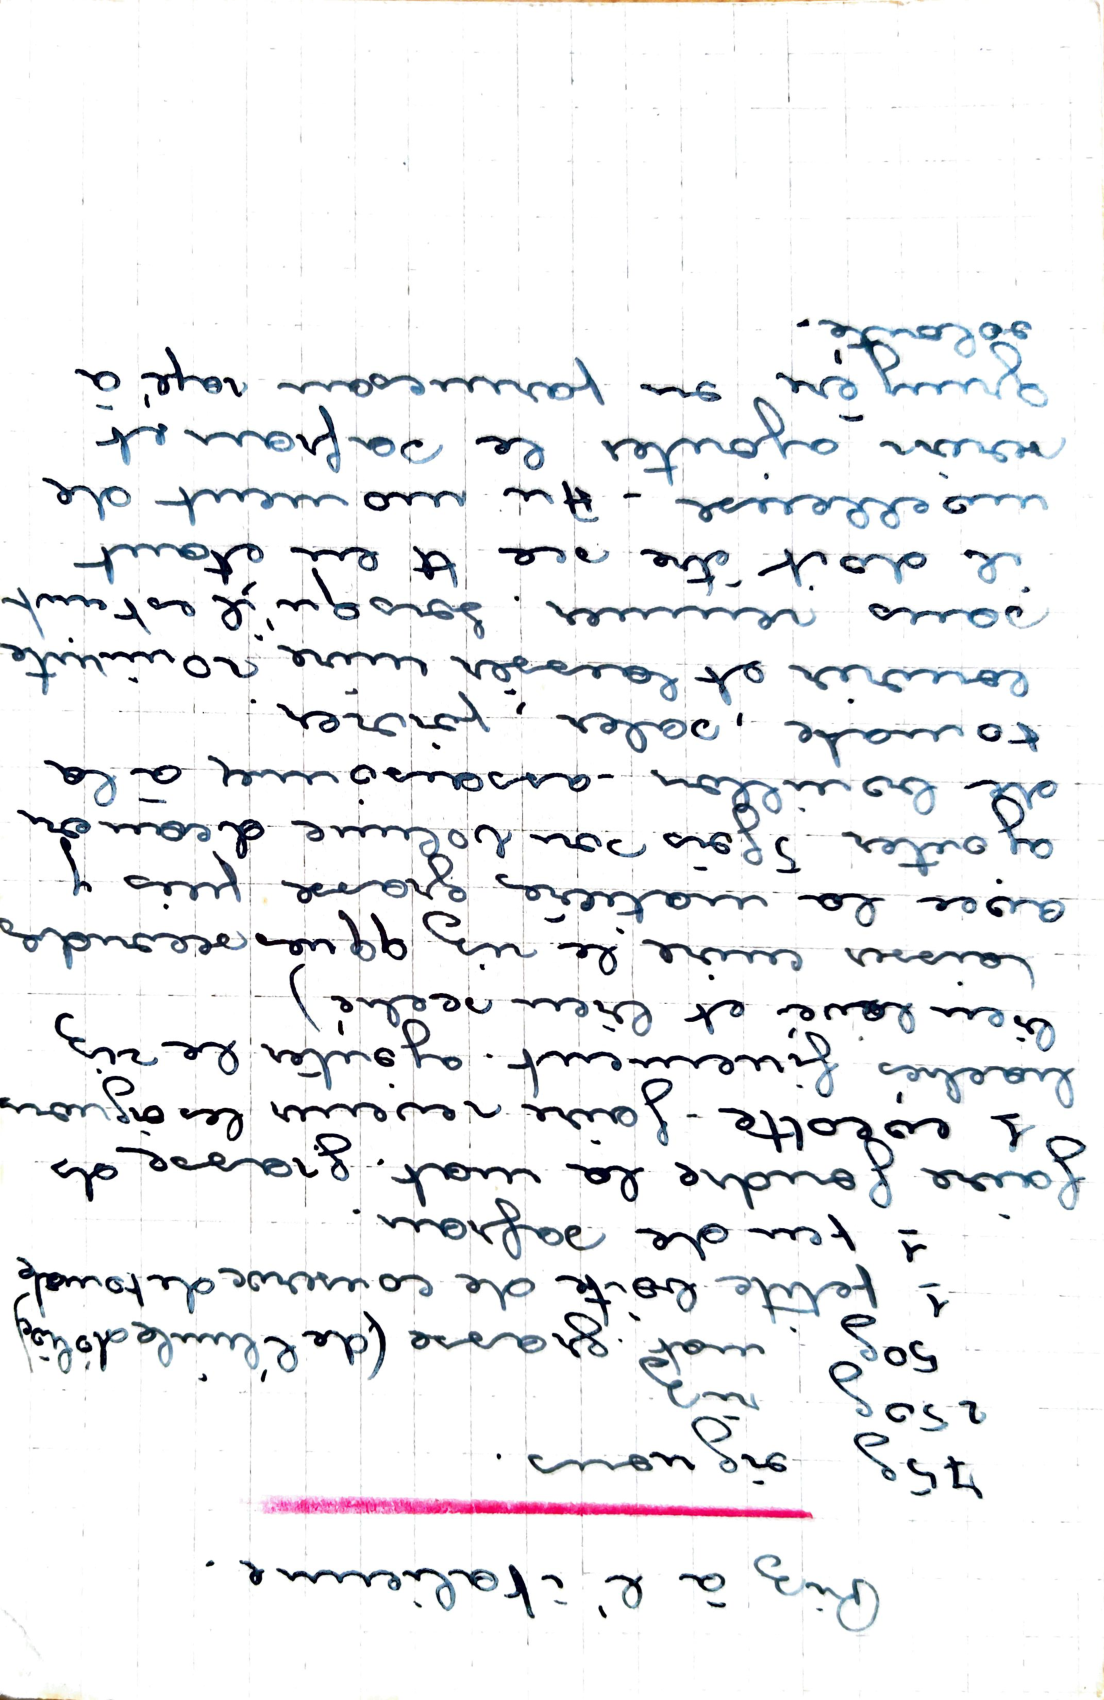 Riz à l'italienne.
75g oignons.
250g riz
50g mat. grasse (de l'huile d'olive)
1 petite boîte de conserve de tomate
1 peu de safran.
faire fondre la mat. grasse ds
1 cocotte - faire revenir les oignons
hachés finement. ajouter le riz
bien lavé et bien séché)
laisser cuire le riz qques secondes
avec la matière grasse puis y
ajouter 3 fois son volume d'eau ou
de bouillon - assaisonner à la
tomate, saler, poivrer
couvrir et laisser cuire 20 minute
sans remuer. Lorsqu'il est cuit
il doit être sec tt en étant
moelleuse - Au moment de
servir ajouter le safran et
gruyère ou parmesan rapé à
volonté.